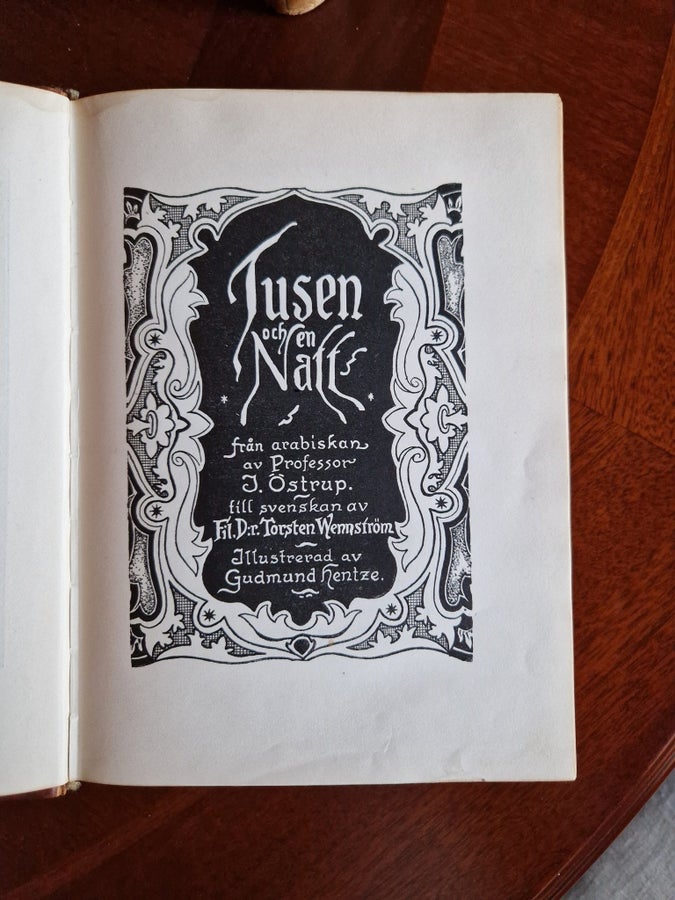 Tusen
och en
Natt
från arabiskan
av Professor
J. Östrup.
till svenskan av
Fil. D:r. Torsten Wennström
Illustrerad av
Gudmund Hentze.